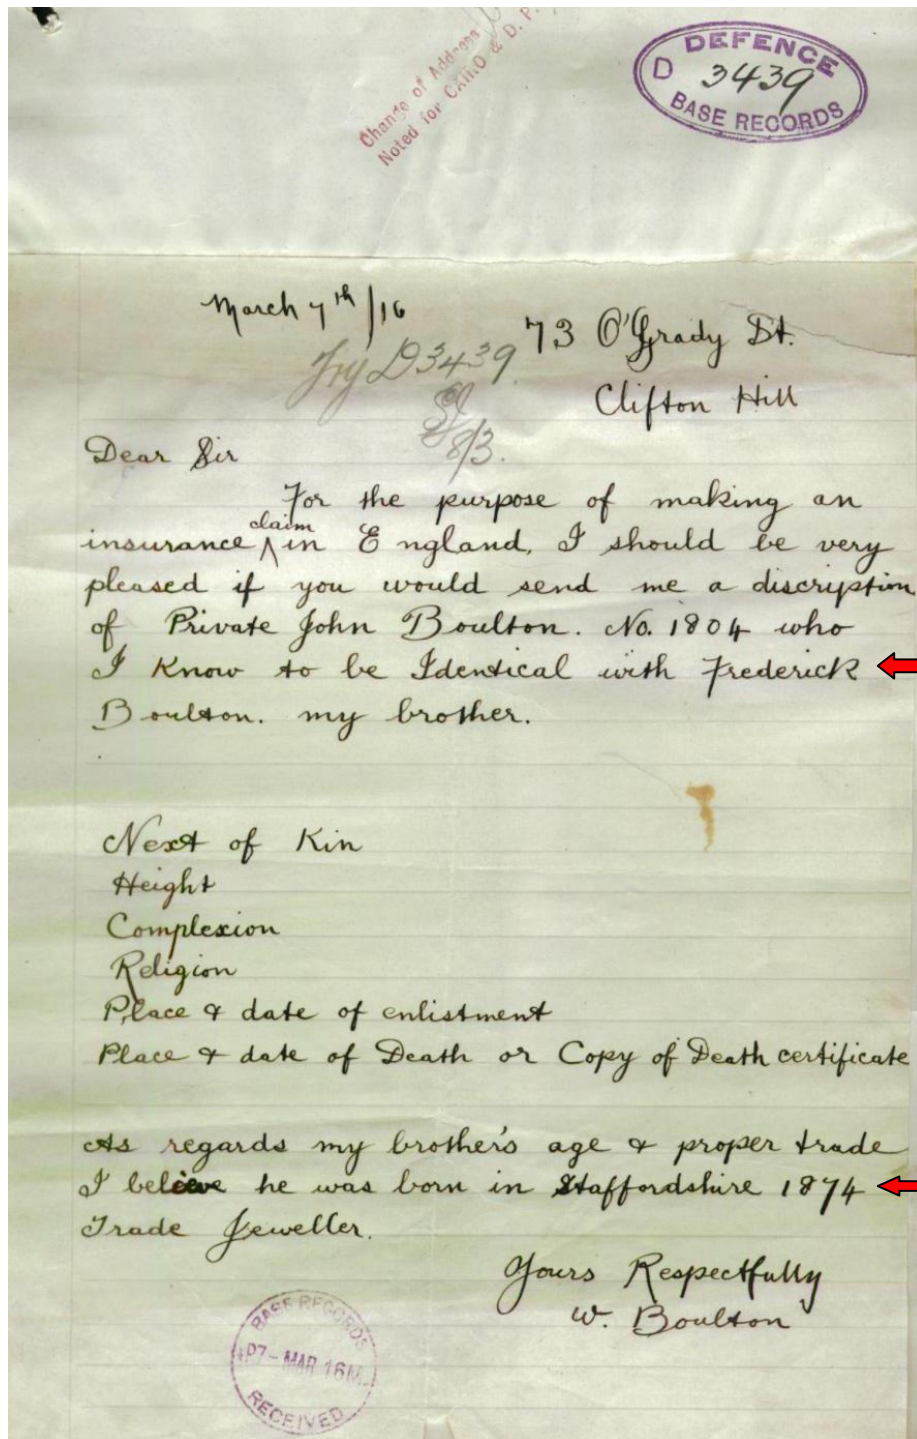 Change of Address
Noted for CAIRO & D. P.
DEFENCE
D 3439
BASE RECORDS
March 7th/16
73 O'Grady St.
Clifton Hill
D3439
8/3.
Dear Sir
For the purpose of making an
insurance claim in England, I should be very
pleased if you would send me a discription
of Private John Boulton. No. 1804 who
I Know to be Identical with Frederick
Boulton. my brother.
Next of Kin
Height
Complexion
Religion
Place & date of enlistment
Place & date of Death or Copy of Death certificate
As regards my brother's age & proper trade
I believe he was born in Staffordshire 1874
Trade Jeweller.
Yours Respectfully
W. Boulton
BASE RECORDS
7 - MAR 16
RECEIVED